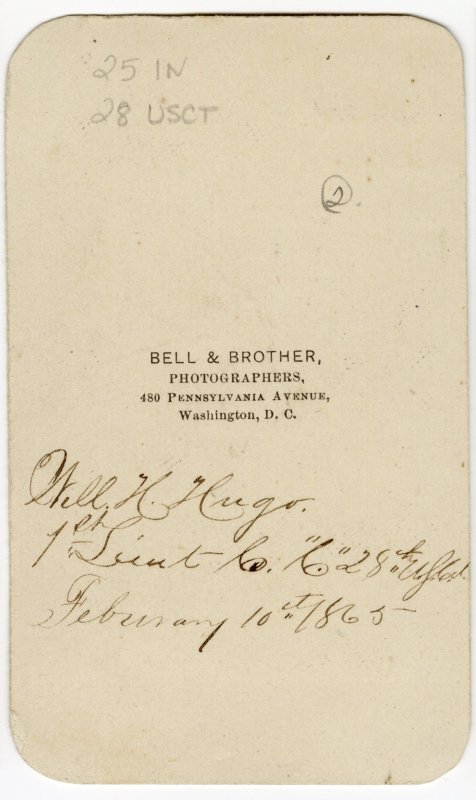 25 IN
28 USCT
2.
BELL & BROTHER,
PHOTOGRAPHERS,
480 PENNSYLVANIA AVENUE,
Washington, D. C.
Will. H. Hugo.
1st Lieut Co. "C" 28th
Feburary 10th 1865